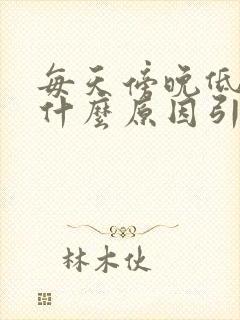 每天傍晚低
什麼原因引
林木伙